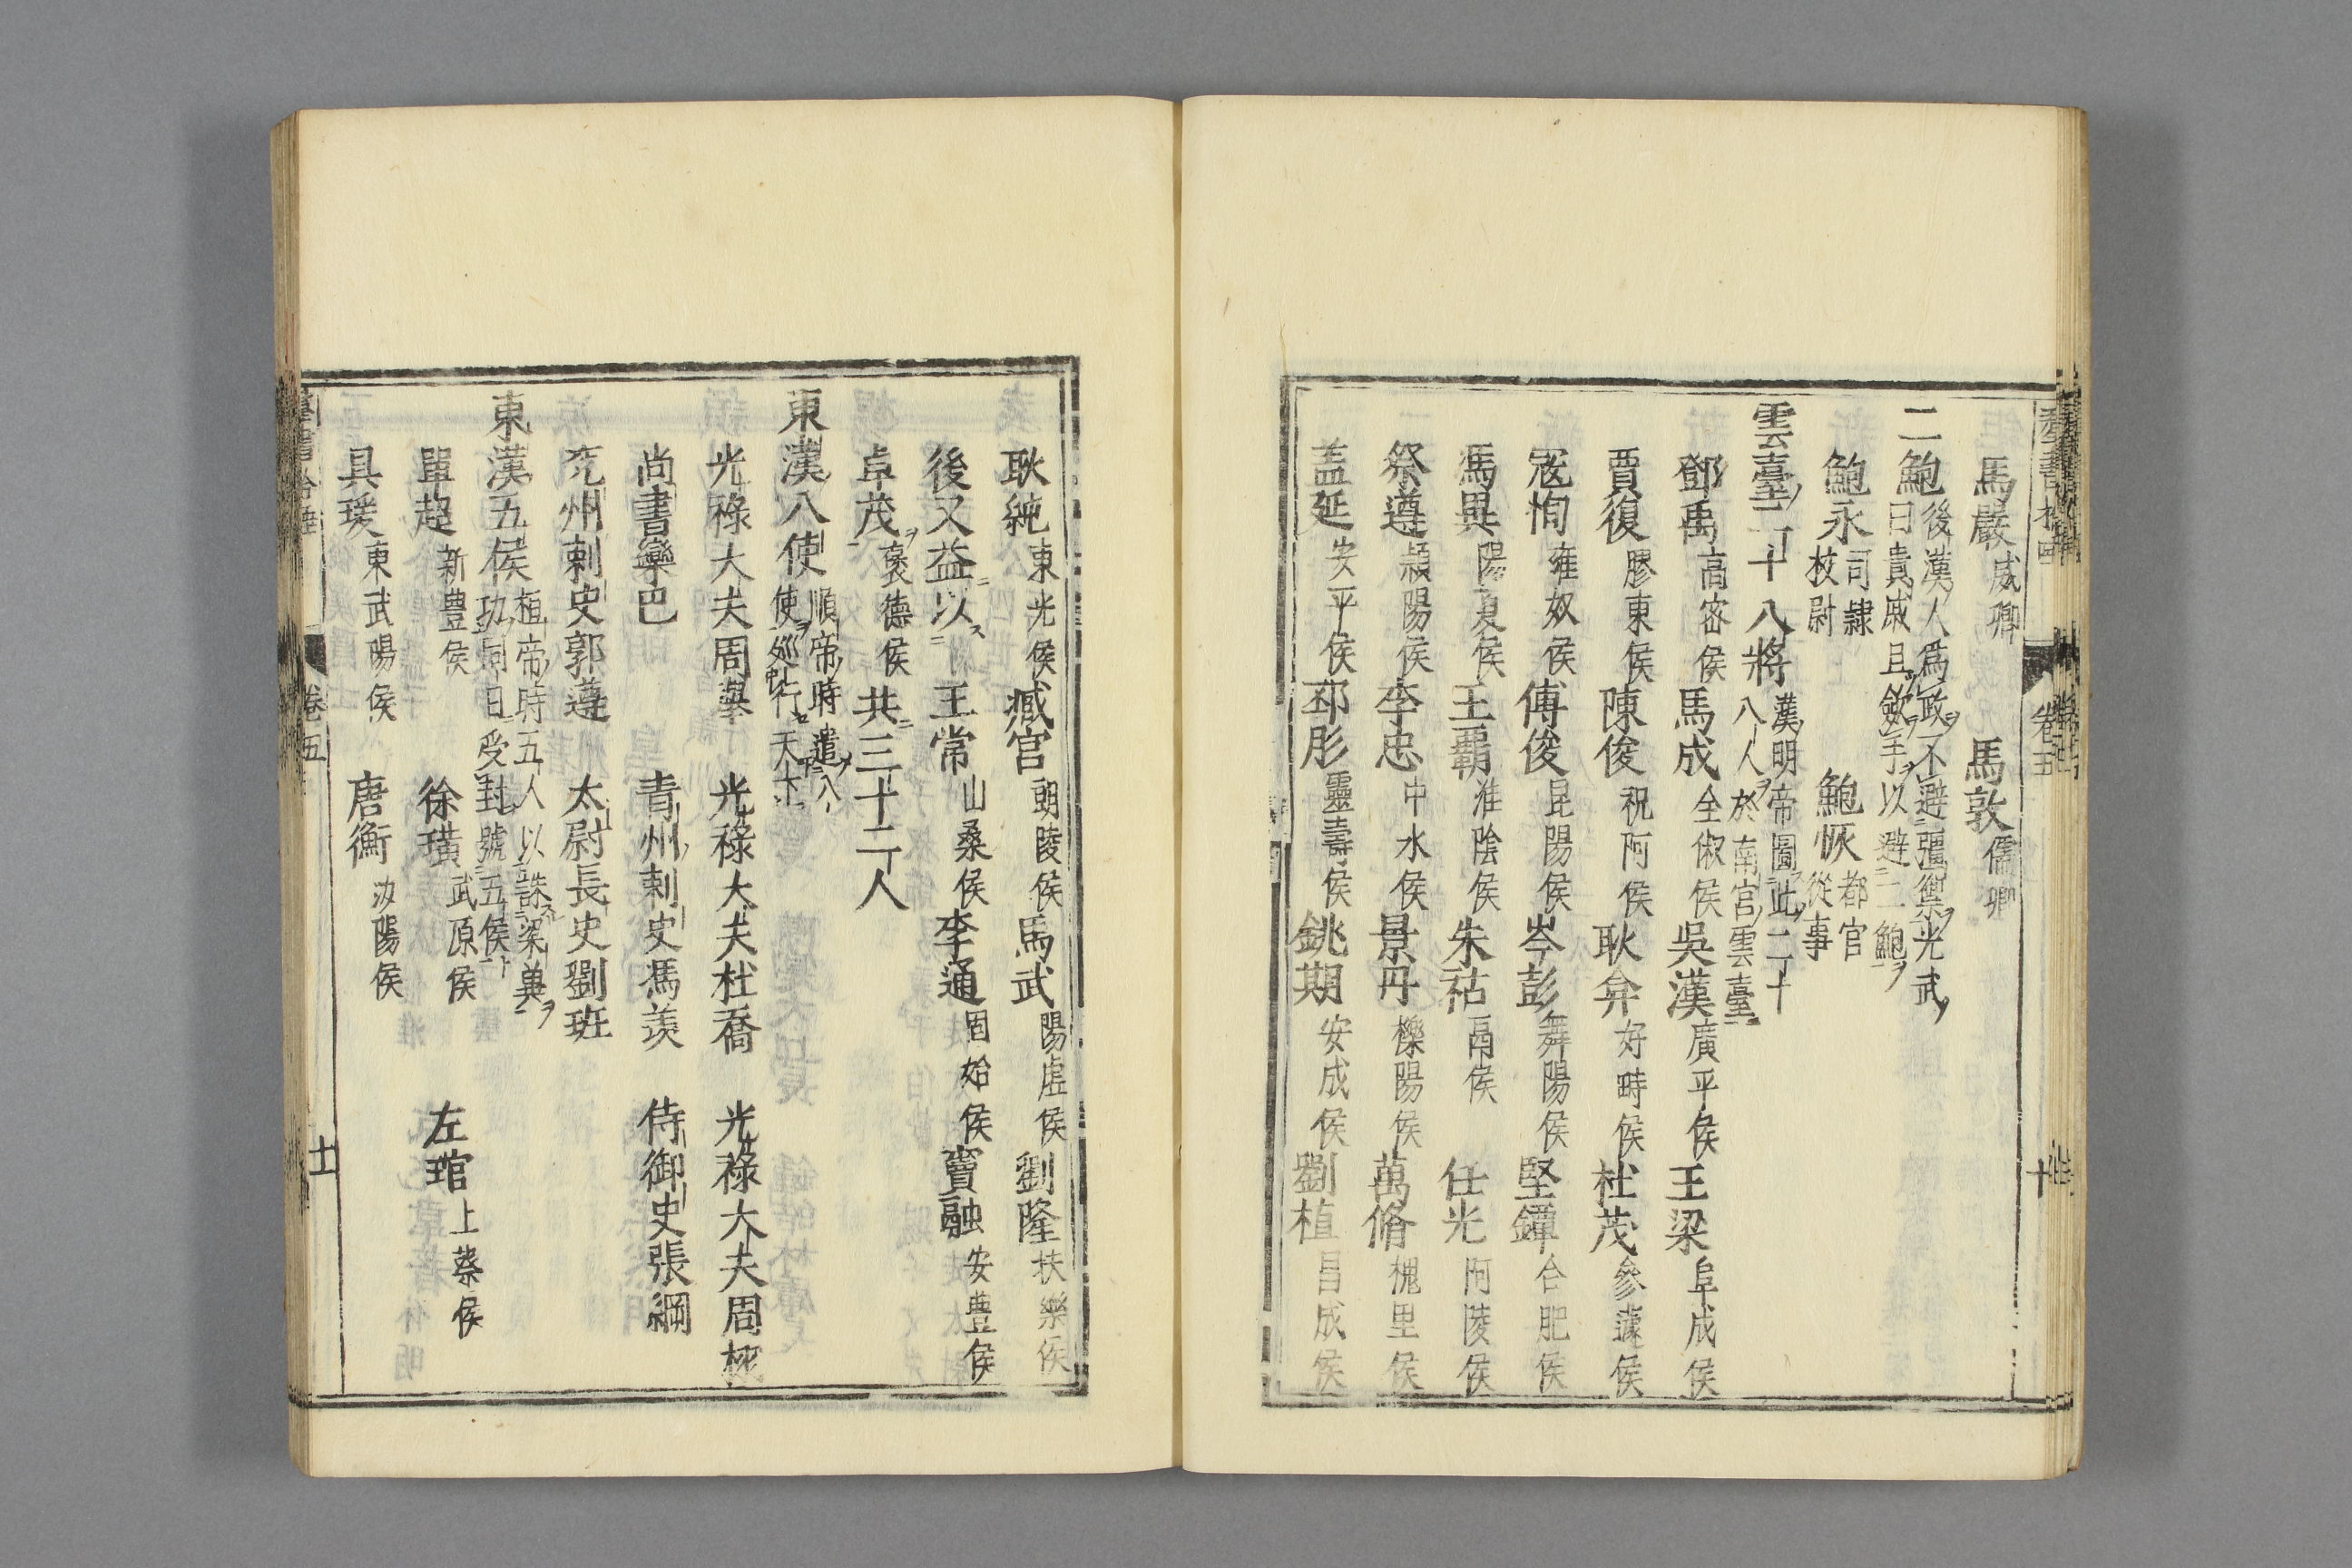 馬嚴威卿 馬敦儒卿
二鮑後漢人爲政不避彊禦光武
曰貴戚且斂手以避二鮑
鮑永司隷校尉 鮑恢都官從事
雲臺二十八將漢明帝圖此二十
八人於南宮雲臺
鄧禹高密侯 馬成全俶侯 吳漢廣平侯 王梁阜成侯
賈復膠東侯 陳俊祝阿侯 耿弇好畤侯 杜茂參蘧侯
寇恂雍奴侯 傅俊昆陽侯 岑彭舞陽侯 堅鐔合肥侯
馮異陽夏侯 王覇淮陰侯 朱祜鬲侯 任光阿陵侯
祭遵潁陽侯 李忠中水侯 景丹櫟陽侯 萬脩槐里侯
蓋延安平侯 邳肜靈壽侯 銚期安成侯 劉植昌成侯
卷五 十
耿純東光侯 臧宮朗陵侯 馬武陽虚侯 劉隆扶樂侯
後又益以 王常山桑侯 李通固始侯 竇融安豊侯
卓茂褒德侯 共三十二人
東漢八使順帝時遣八
使巡行天下
光祿大夫周擧 光祿大夫杜喬 光祿大夫周栩
尚書欒巴 青州刺史馮羨 侍御史張綱
兗州刺史郭遵 太尉長史劉班
東漢五侯桓帝時五人以誅梁冀
功同日受封號五侯
單超新豊侯 徐璜武原侯 左琯上蔡侯
具瑗東武陽侯 唐衡汝陽侯
卷五 十一